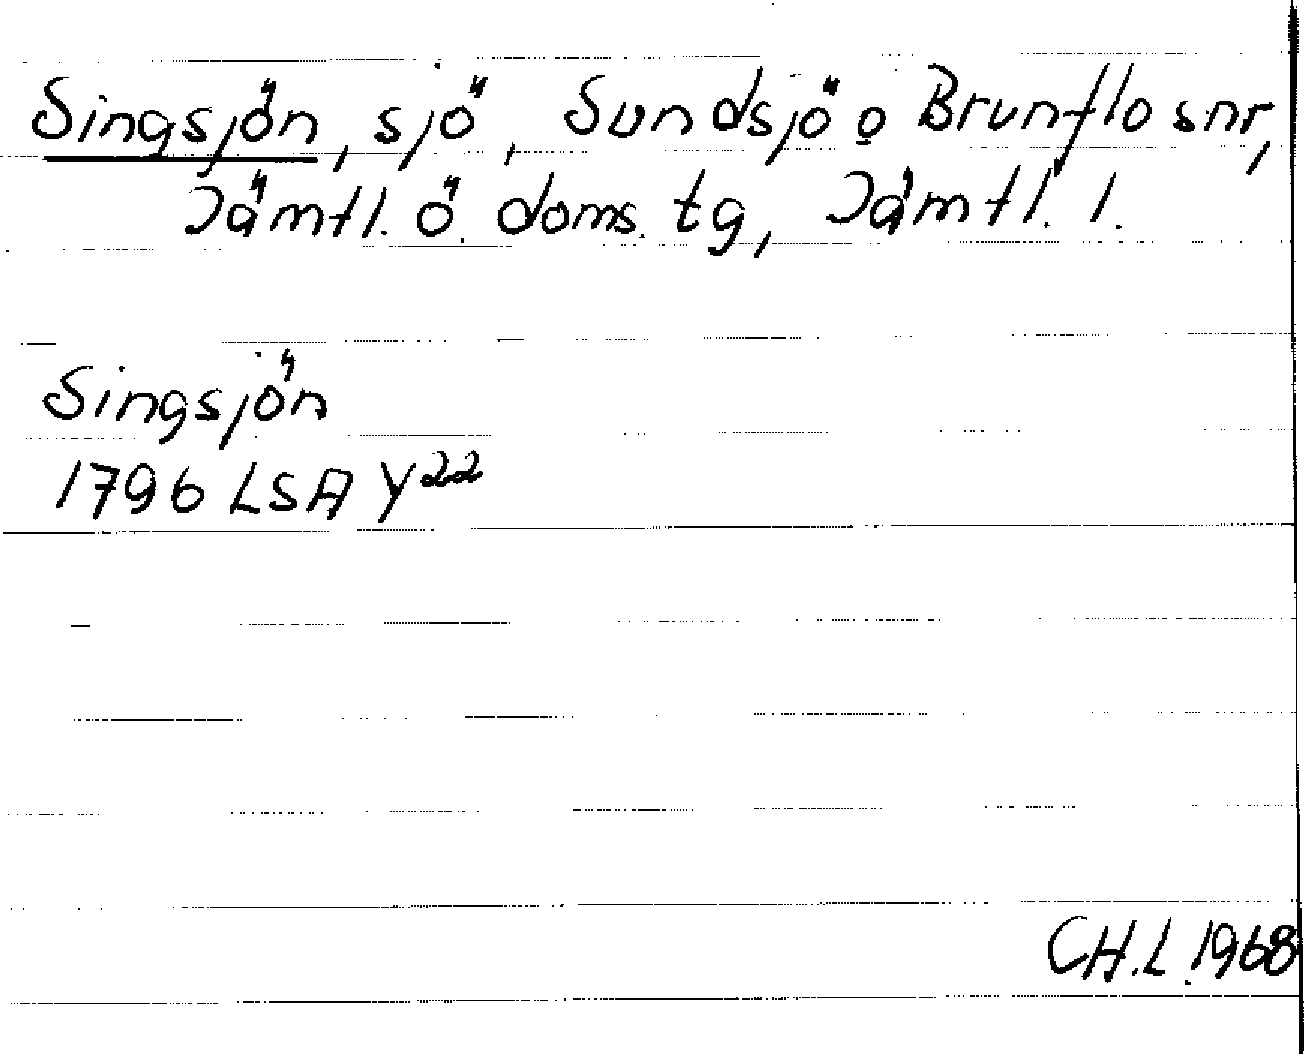 Singsjön, sjö, Sundsjö o Brunflo snr,
Jämtl. ö. doms. tg, Jämtl. l.
Singsjön
1796 LSA Y²²
CH.L. 1968